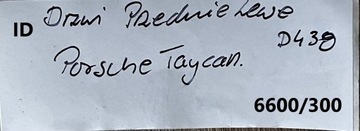 ID Drzwi Przednie Lewe
D438
Porsche Taycan.
6600/300